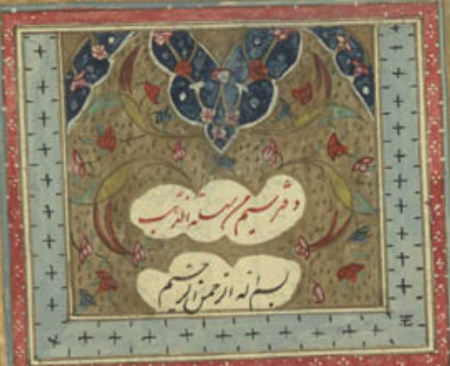 دفتر سیم من سلسلة الذهب
بسم الله الرحمن الرحیم